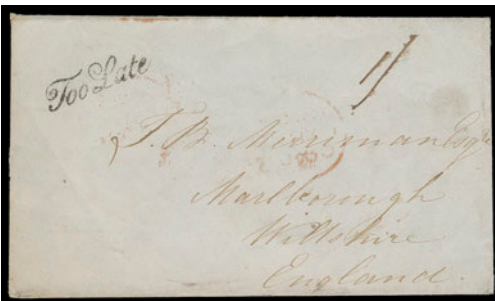 Too Late
1/
T. B. Merriman Esqre
Marlborough
Wiltshire
England.